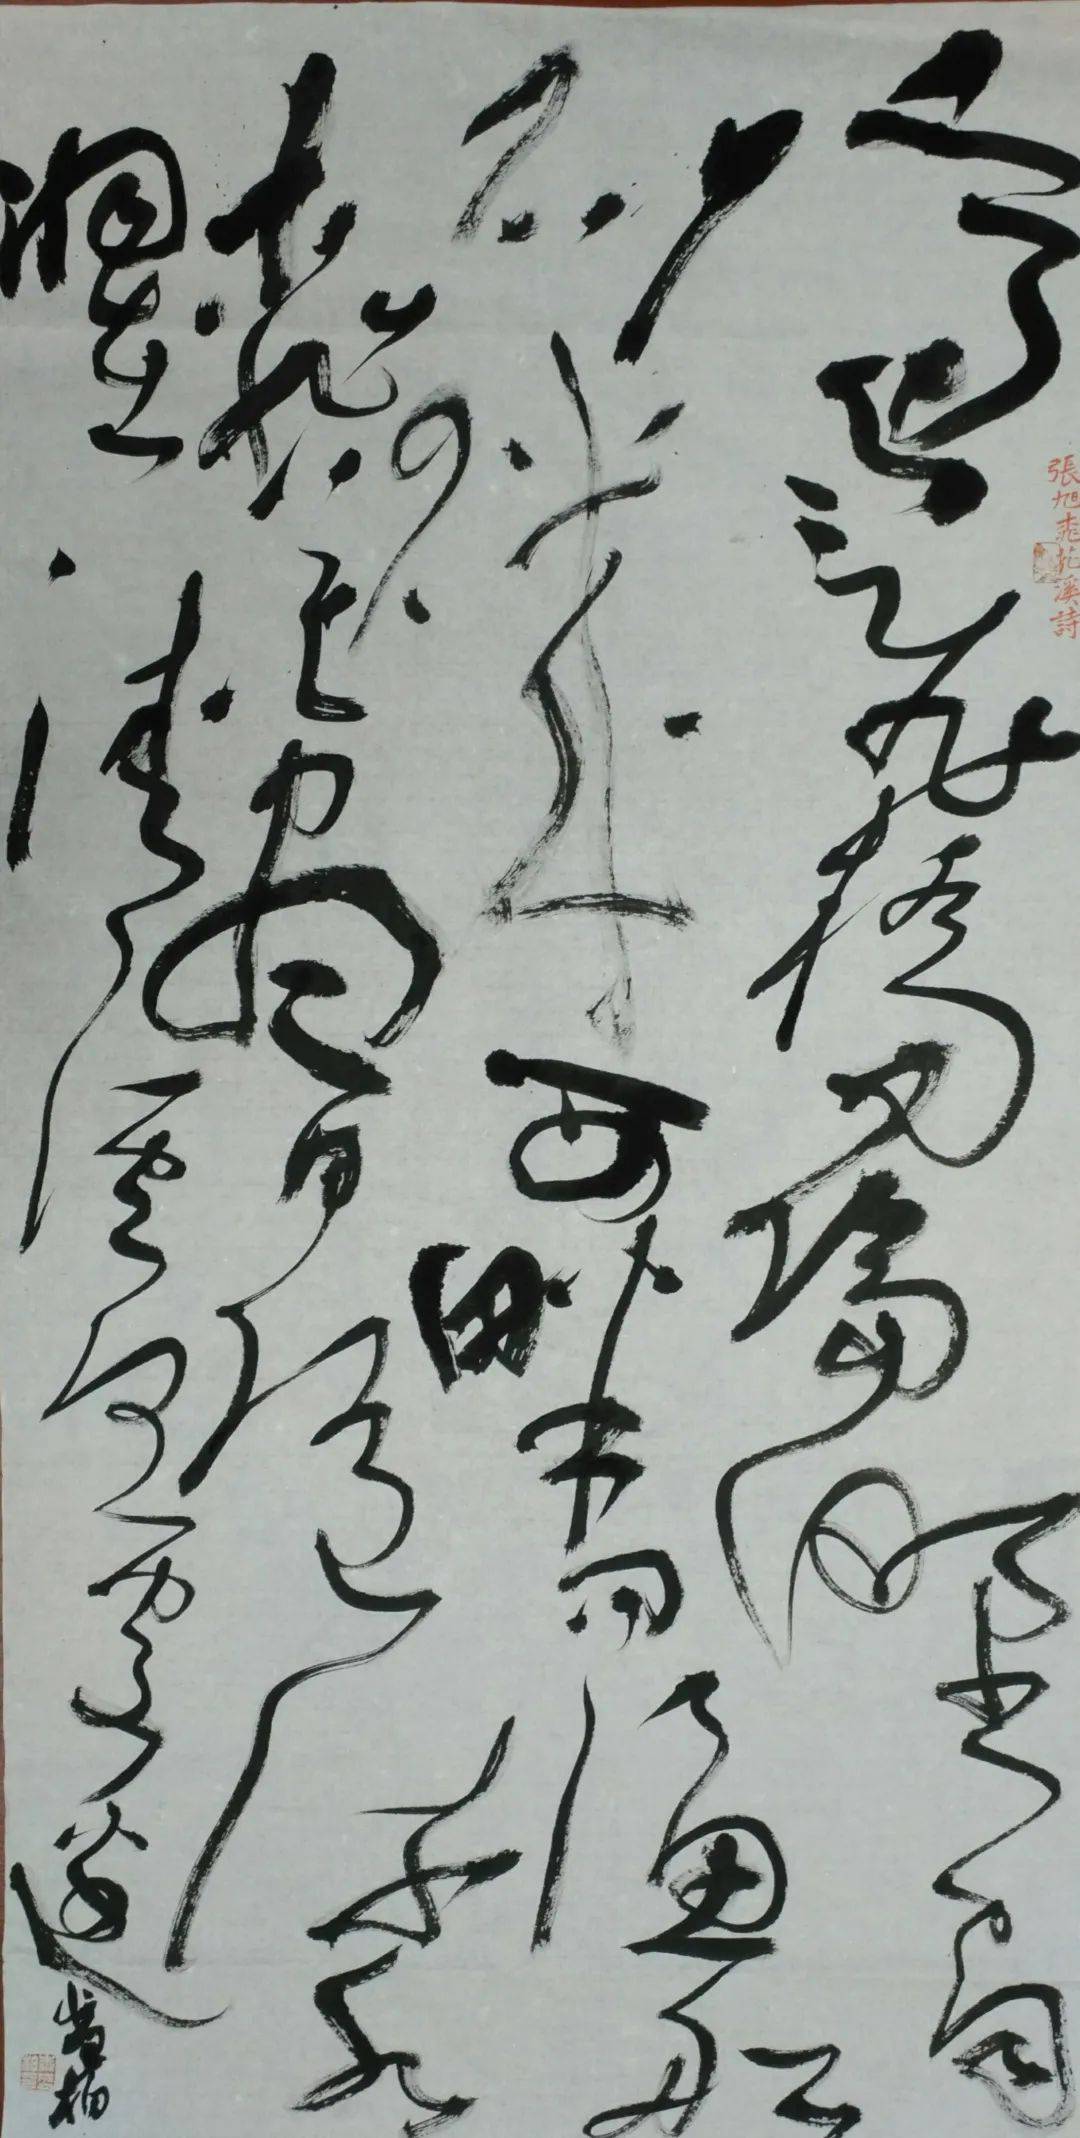 張旭桃花溪詩
隱隱飛橋隔野煙
石磯西畔問漁船
桃花盡日隨流水
洞在清溪何處邊